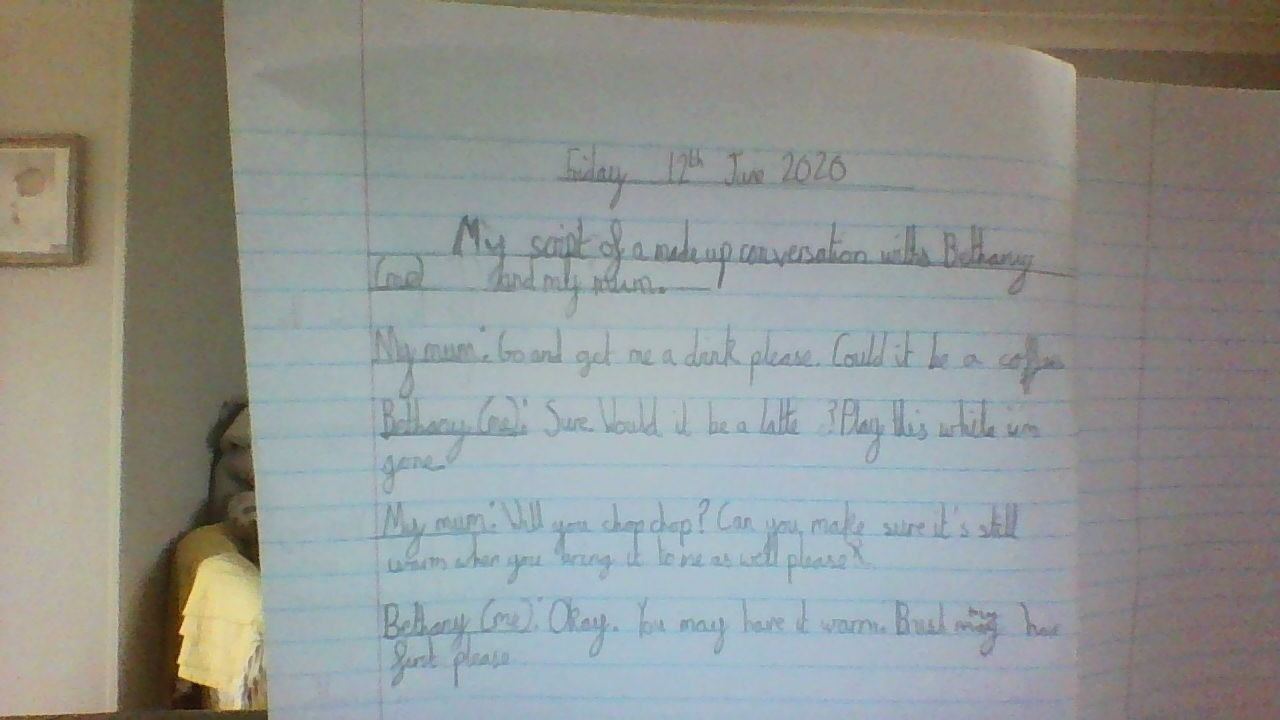 Friday 12th June 2020
My script of a made up conversation with Bethany
(me) and my mum.
My mum: Go and get me a drink please. Could it be a coffee
Bethany (me): Sure. Would it be a latte ? Play this while im
gone
My mum: Will you chop chop? Can you make sure it's still
warm when you bring it to me as well please
Bethany (me): Okay. You may have it warm. Brush my hair
first please